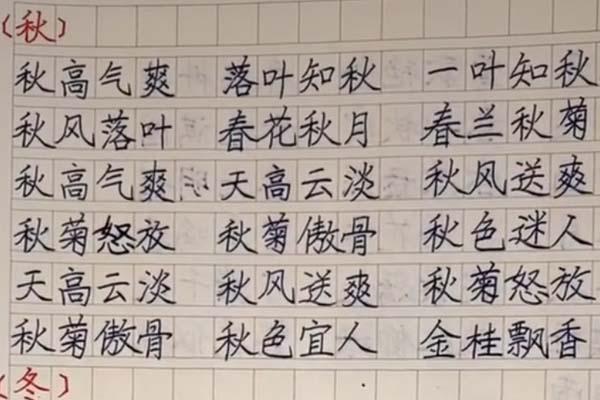 (秋)
秋高气爽 落叶知秋 一叶知秋
秋风落叶 春花秋月 春兰秋菊
秋高气爽 天高云淡 秋风送爽
秋菊怒放 秋菊傲骨 秋色迷人
天高云淡 秋风送爽 秋菊怒放
秋菊傲骨 秋色宜人 金桂飘香
(冬)